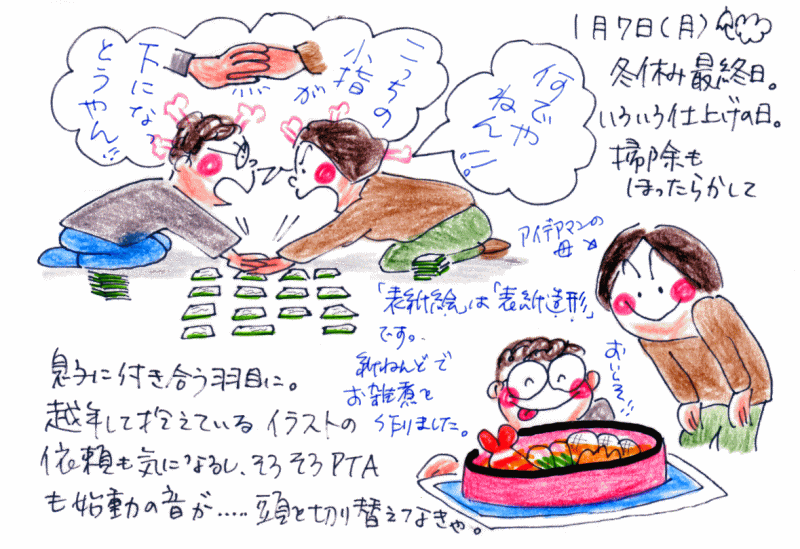 1月7日(月)
冬休み最終日。
いろいろ仕上げの日。
掃除も
ほったらかして
何でや
ねん!!
こっちの
小指が
下になっ
とうやん!!
アイデアマンの
母
「表紙絵」は「表紙造形」
です。
紙ねんどで
お雑煮を
作りました。
おいしそ!!
息子に付き合う羽目に。
越年して抱えているイラストの
依頼も気になるし、そろそろPTA
も始動の音が.....頭を切り替えなきゃ。